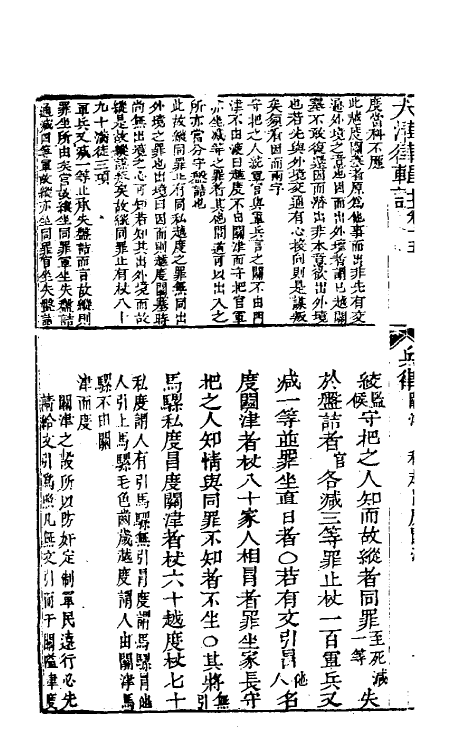 大清律輯註 卷十五
兵律 關津 私越冒度關津
度當科不應
此越度關塞者原爲他事而出非先有交
通外境之意也因而出外境者謂已越關
塞不敢復還因而潛出非本意欲出外境
也若先與外境交通有心投向則是謀叛
矣須看因而兩字
守把之人統軍官與軍兵言之關不由門
津不由渡曰越度不由關津而守把官軍
亦坐罪者其他間道可以出入之
所亦當分守盤詰也
此故縱同罪止有同私越度之罪無同出
外境之罪也出境曰因而則越度關塞時
尚無出境之心可知若知其出外境而故
縱是故縱謀叛矣故縱同罪止有杖八十
九十滿徒三項
軍兵又减一等止承失盤詰而言故縱則
罪坐所由矣官故縱坐同罪軍坐失盤詰
通减四等軍故縱亦坐同罪官坐失盤詰
絞監候守把之人知而故縱者同罪至死减一等失
於盤詰者官各減三等罪止杖一百軍兵又
减一等並罪坐直日者○若有文引冒他人名
度關津者杖八十家人相冒者罪坐家長守
把之人知情與同罪不知者不坐○其將無引
馬騾私度冒度關津者杖六十越度杖七十
私度謂人有引馬騾無引冒度謂馬騾冒他
人引上馬騾毛色齒歲越度謂人由關津馬
騾不由關
津而度
關津之設所以防奸定制軍民遠行必先
請給文引爲照凡無文引而于關隘津度